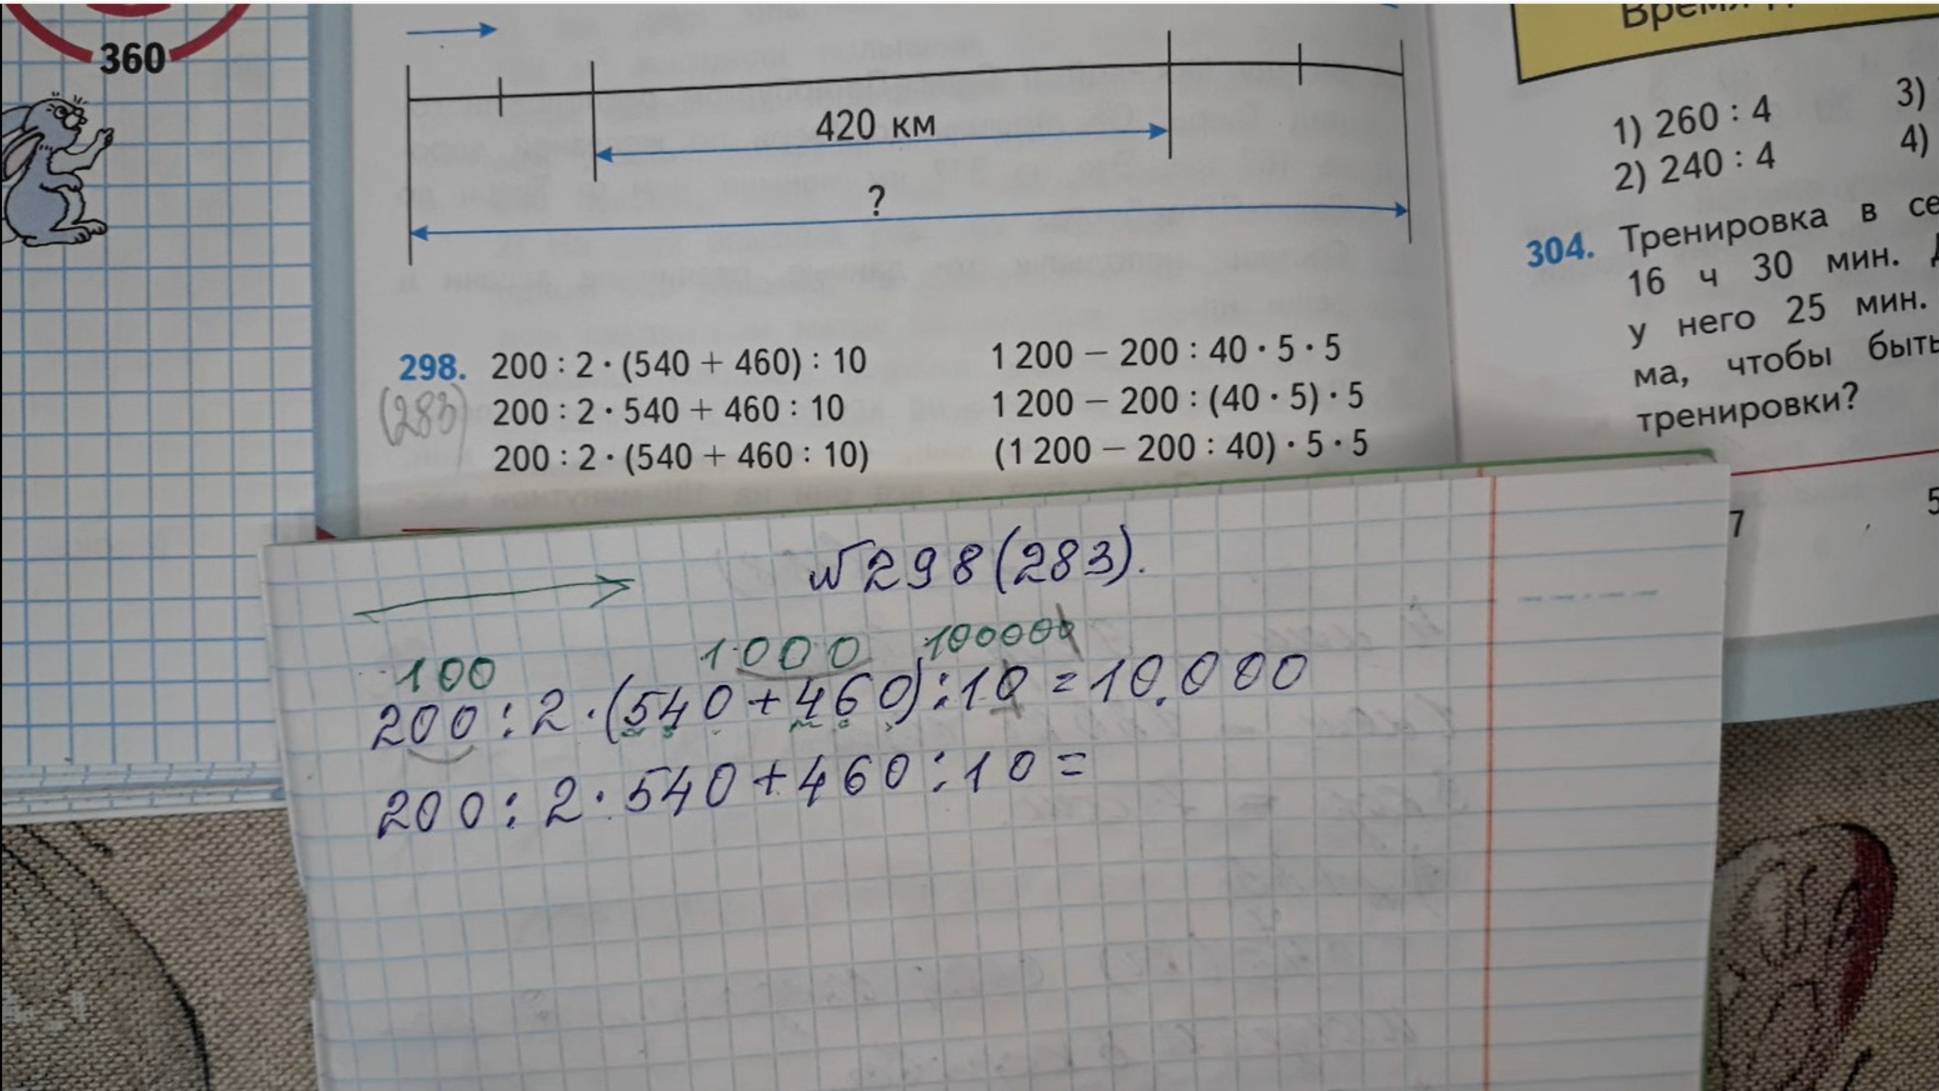 360
420 км
?
298. 200 : 2 · (540 + 460) : 10
(283) 200 : 2 · 540 + 460 : 10
200 : 2 · (540 + 460 : 10)
1 200 − 200 : 40 · 5 · 5
1 200 − 200 : (40 · 5) · 5
(1 200 − 200 : 40) · 5 · 5
1) 260 : 4
2) 240 : 4
3)
4)
304. Тренировка в се
16 ч 30 мин.
у него 25 мин.
ма, чтобы быть
тренировки?
7
5
№298(283).
100 1000 100000
200 : 2 · (540 + 460) : 10 = 10.000
200 : 2 · 540 + 460 : 10 =